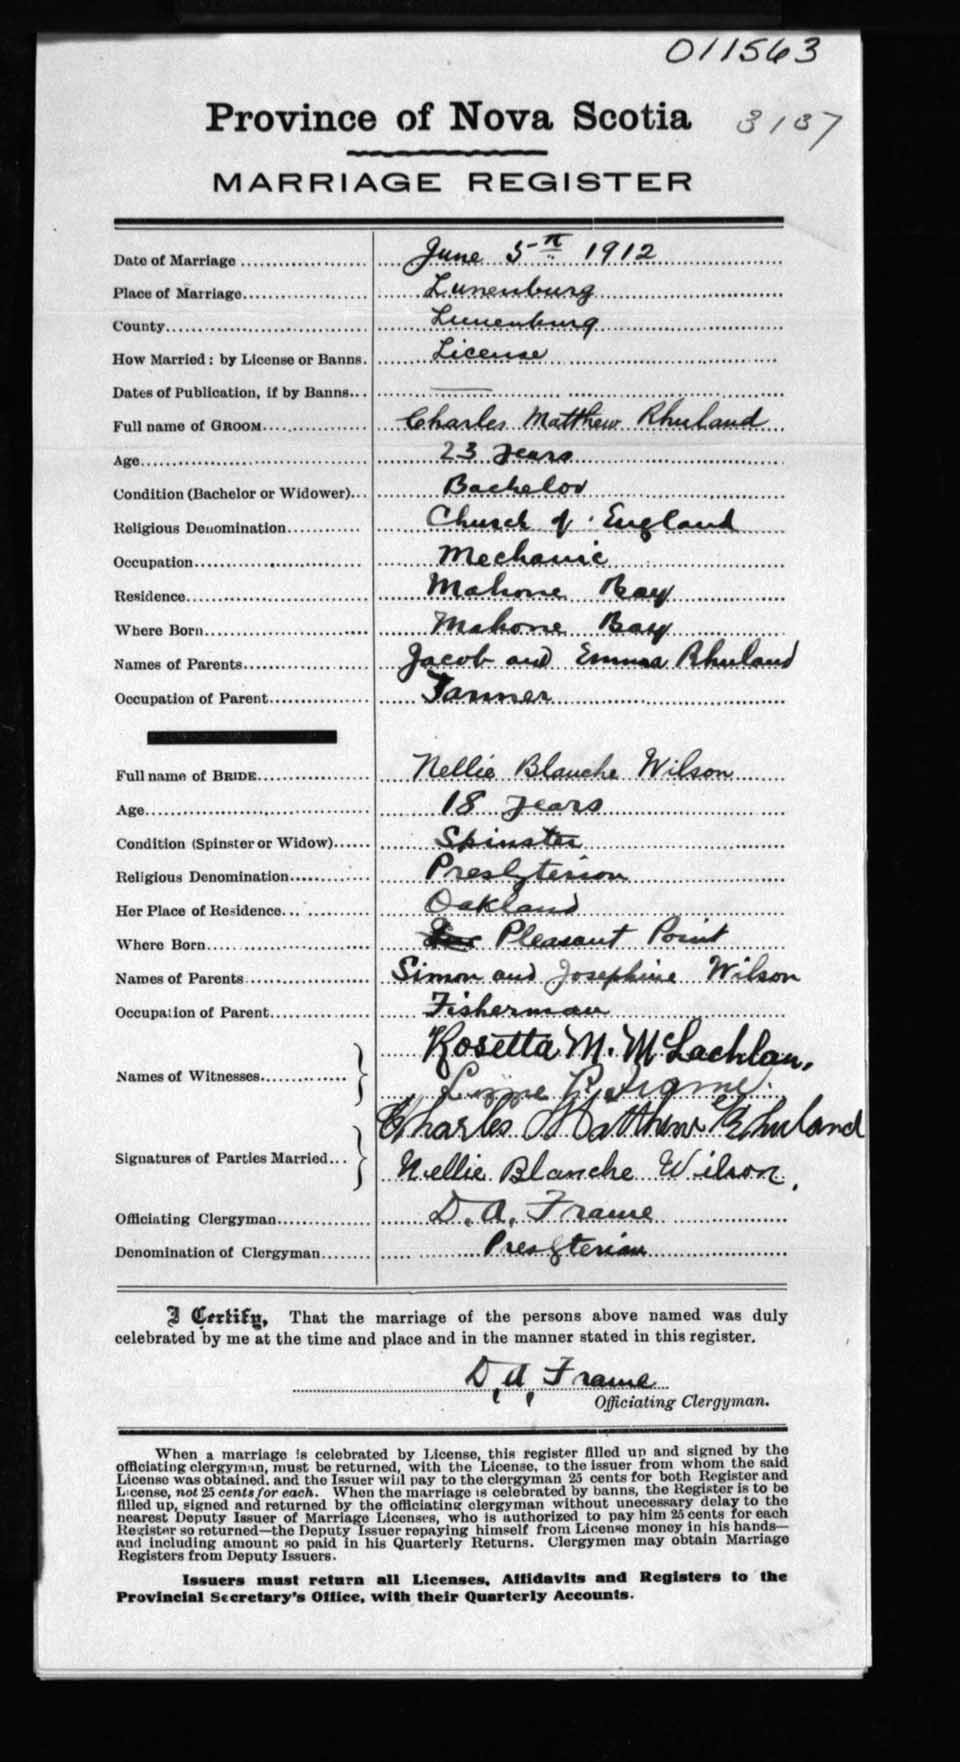 011563
Province of Nova Scotia 3137
MARRIAGE REGISTER
Date of Marriage June 5th 1912
Place of Marriage Lunenburg
County Lunenburg
How Married: by License or Banns. License
Dates of Publication, if by Banns
Full name of GROOM Charles Matthew Rhuland
Age 23 years
Condition (Bachelor or Widower) Bachelor
Religious Denomination Church of England
Occupation Mechanic
Residence Mahone Bay
Where Born Mahone Bay
Names of Parents Jacob and Emma Rhuland
Occupation of Parent
Full name of BRIDE Nellie Blanche Wilson
Age 18 years
Condition (Spinster or Widow) Spinster
Religious Denomination Presbyterian
Her Place of Residence Oakland
Where Born Pleasant Point
Names of Parents Simon and Josephine Wilson
Occupation of Parent Fisherman
Rosetta M. McLachlan.
Names of Witnesses
Charles Matthew Rhuland
Signatures of Parties Married
Nellie Blanche Wilson.
Officiating Clergyman D. A. Frame
Denomination of Clergyman Presbyterian
I Certify, That the marriage of the persons above named was duly
celebrated by me at the time and place and in the manner stated in this register.
D. A. Frame
Officiating Clergyman.
When a marriage is celebrated by License, this register filled up and signed by the
officiating clergyman, must be returned, with the License, to the issuer from whom the said
License was obtained. and the Issuer will pay to the clergyman 25 cents for both Register and
License, not 25 cents for each. When the marriage is celebrated by banns, the Register is to be
filled up, signed and returned by the officiating clergyman without unnecessary delay to the
nearest Deputy Issuer of Marriage Licenses, who is authorized to pay him 25 cents for each
Register so returned—the Deputy Issuer repaying himself from License money in his hands—
and including amount so paid in his Quarterly Returns. Clergymen may obtain Marriage
Registers from Deputy Issuers.
Issuers must return all Licenses, Affidavits and Registers to the
Provincial Secretary's Office, with their Quarterly Accounts.